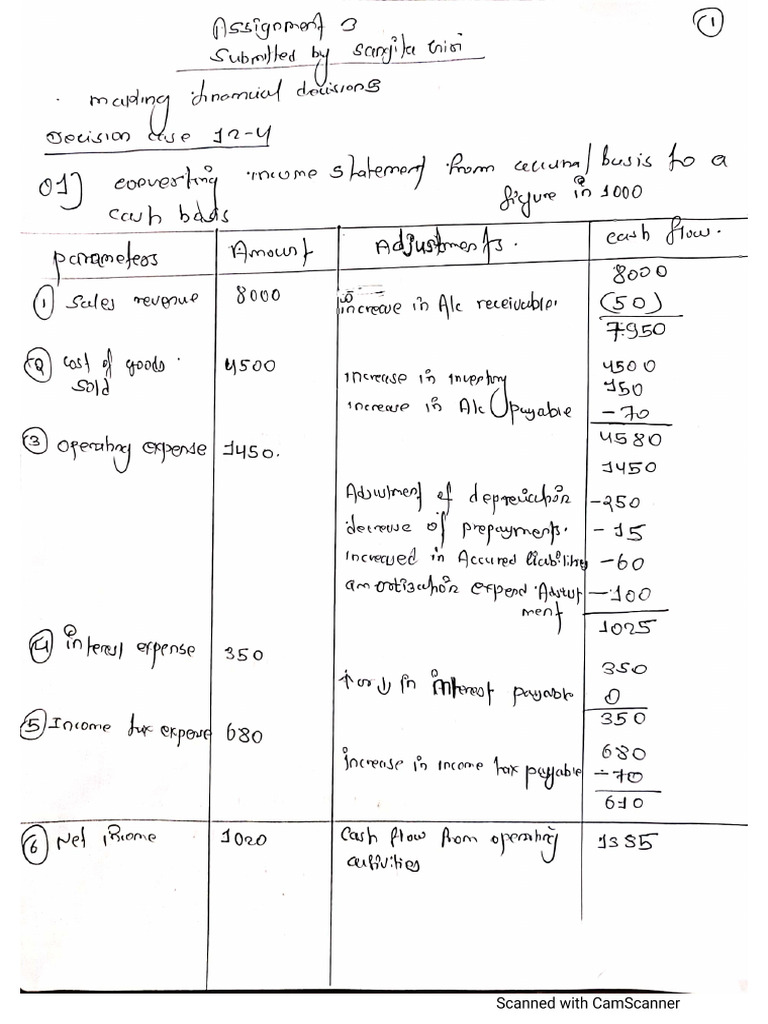 ①
Assignment 3
Submitted by Sangita Giri
making financial decisions
Decision case 12-4
Q1] converting income statement from accrual basis to a
cash basis
figure in 1000
parameters Amount Adjustments. cash flow.
8000
① Sales revenue 8000 increase in A/c receivable. (50)
7950
② Cost of goods 4500 4500
sold increase in inventory 150
increase in A/c payable -70
4580
③ Operating expense 1450. 1450
Adjustment of depreciation -250
decrease of prepayments. -15
increased in Accured liabilities -60
amortization expend Adjust -100
ment
1025
④ interest expense 350 350
↑ or ↓ in interest payable 0
350
⑤ Income tax expense 680 680
increase in income tax payable -70
610
⑥ Net income 1020 Cash flow from operating 1385
activities
Scanned with CamScanner